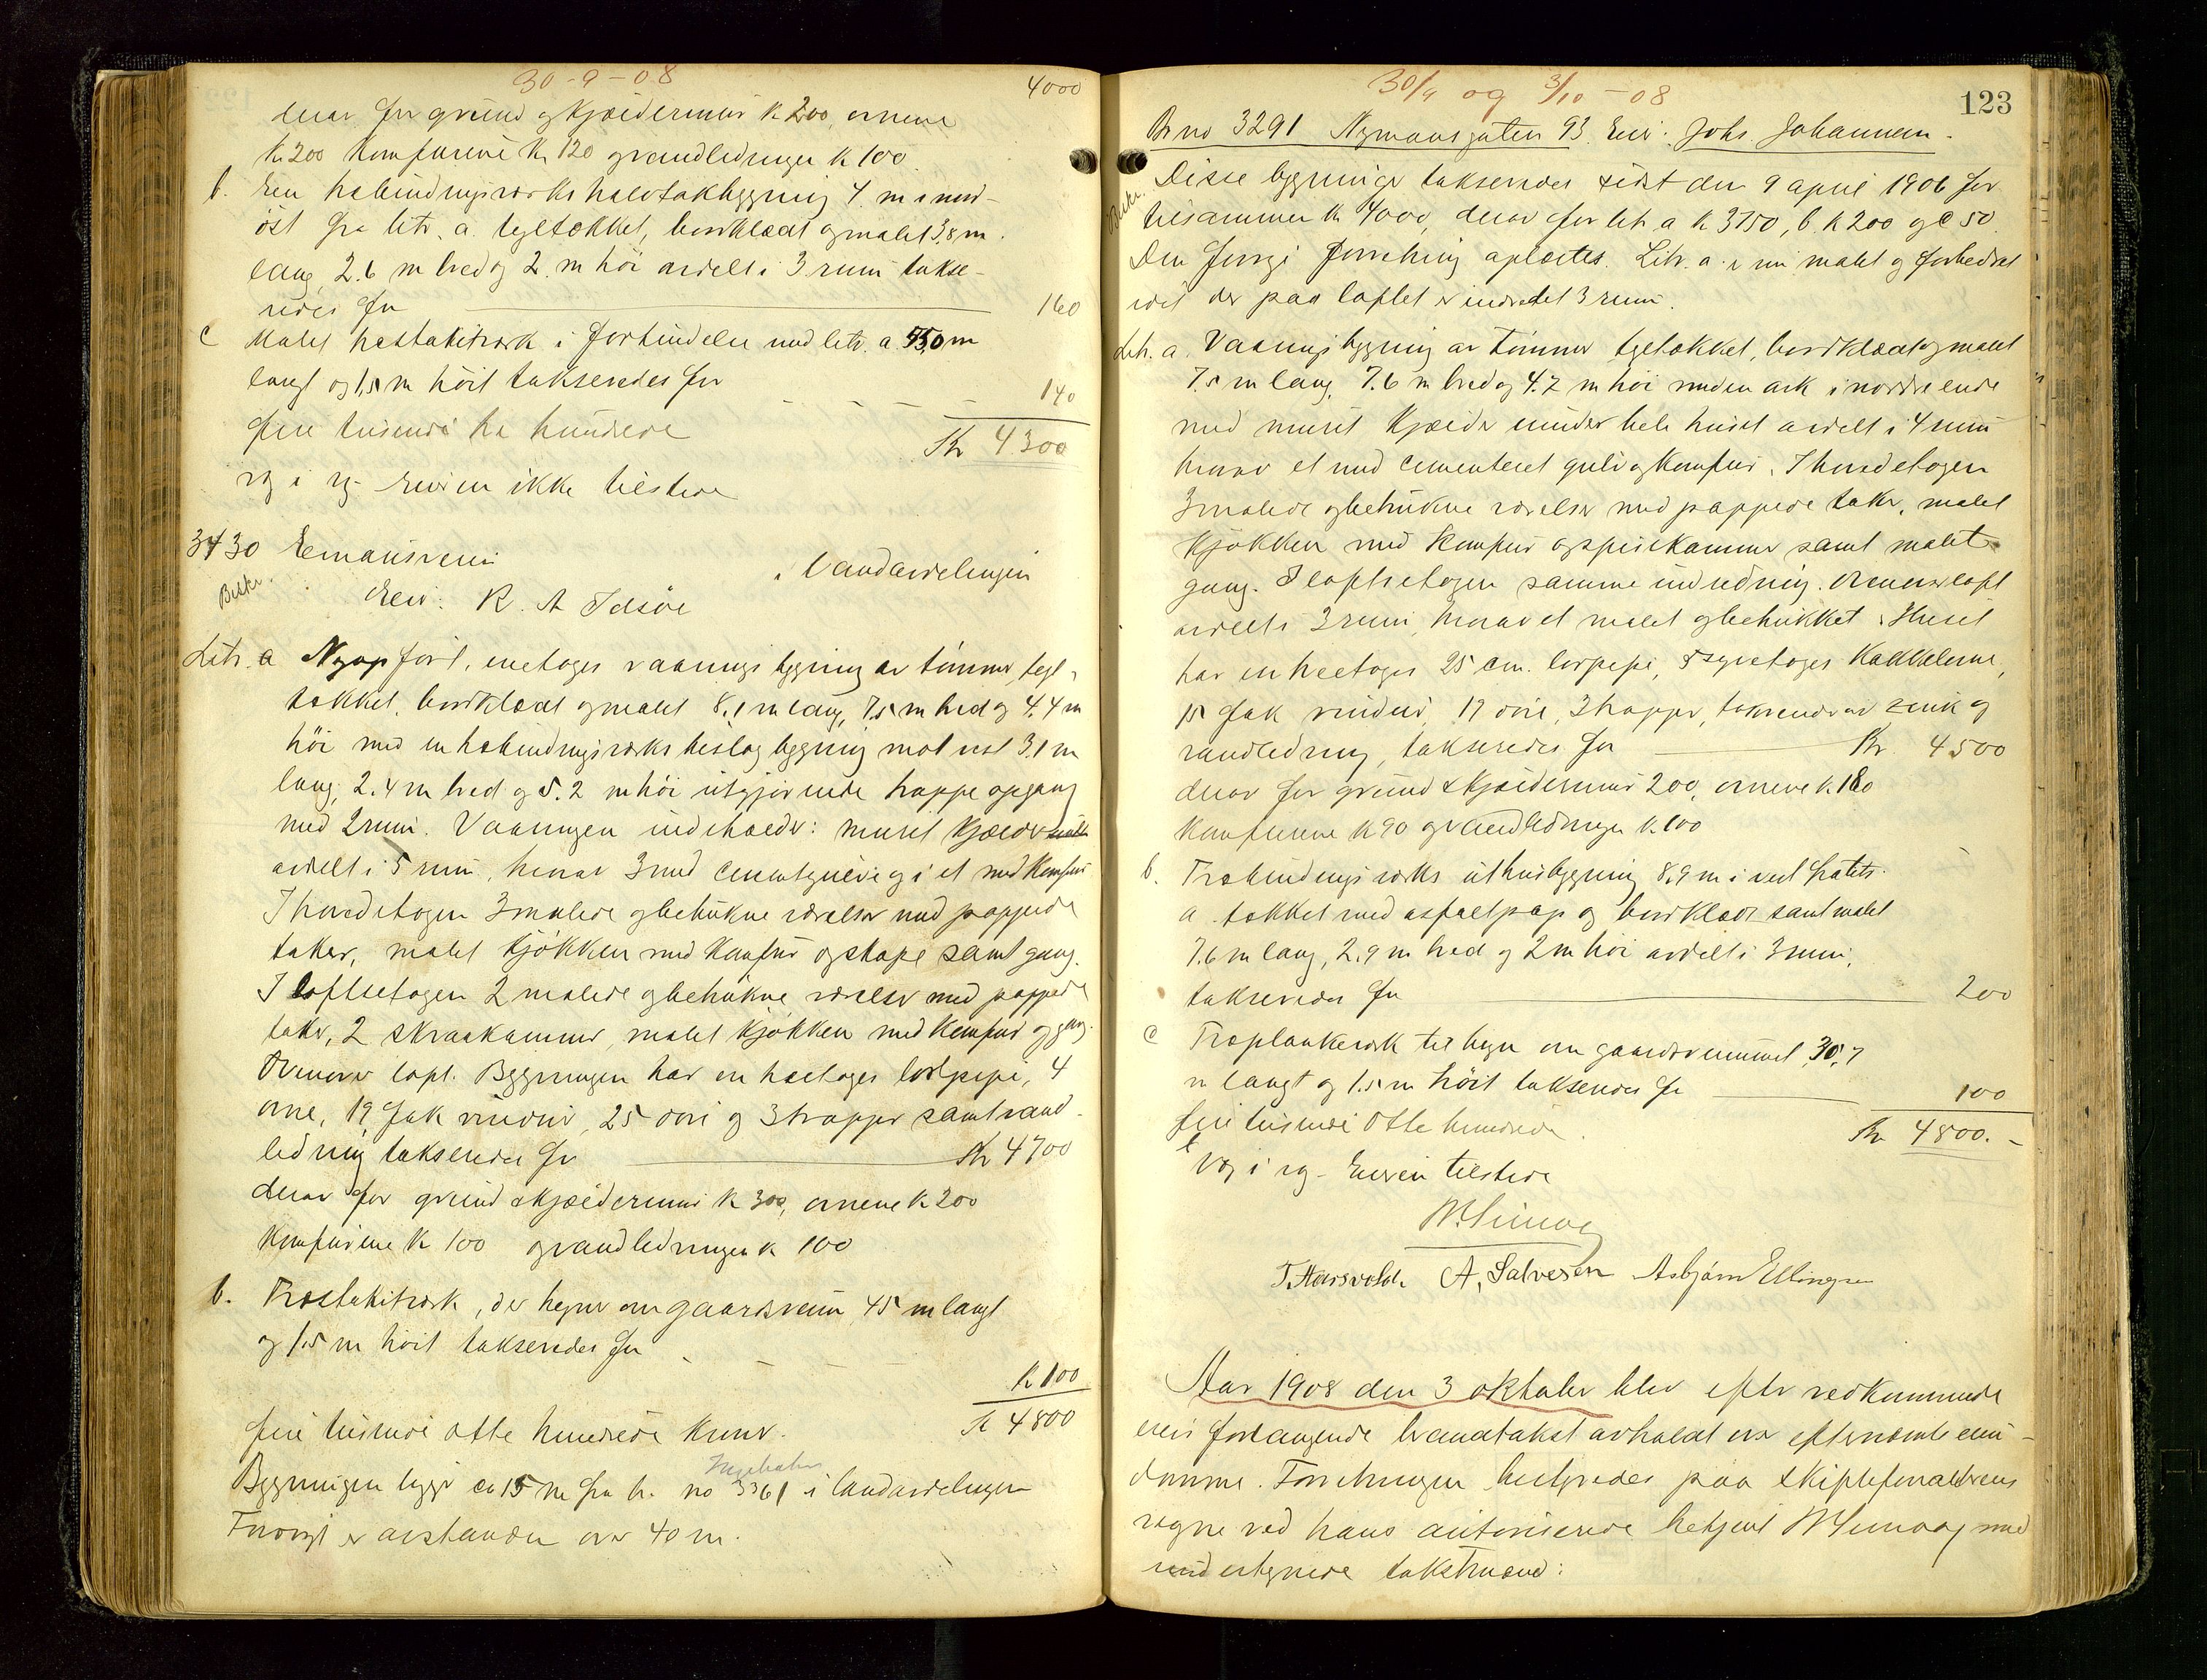 30-9-08
4000
derav for grund og kjældermur k 200, ovnene
k 200 komfurene k 120 og vandledningen k 100
b. En træbindingsværks halvtakbygning 4. m i nord-
øst fra litr. a. tegltækket, bordklædt og malet 3.8 m.
lang 2.6 m bred og 2. m høi avdelt i 3 rum takse-
redes for 160
c Malet træstakitværk i forbindelse med litr. a. 45,0 m
langt og 1,5 m høit takseredes for 140
fire tusende tre hundrede Kr 4300
Eieren ikke tilstede
3430 Emausveien
Landavdelingen
Beskr.
Eier: K. A Idsøe
Litr. a Nyopført, enetages vaaningsbygning av tømmer, tegl-
tækket, bordklædt og malet 8,1 m lang, 7.5 m bred og 4.4 m
høi med en træbindingsværks beslagbygning mot vest 3.1 m
lang, 2.4 m bred og 5.2 m høi utgjørende trappeopgang
med 2 rum. Vaaningen indeholder: muret kjælder
avdelt i 5 rum, hvorav 3 med cementgulv og i et med komfur
I hovedetagen 3 malede og betrukne værelser med pappede
taker, malet kjøkken med komfur og skape samt gang.
I loftsetagen 2 malede og betrukne værelser med pappede
taker, 2 skraakammer, malet kjøkken med komfur og gang.
Ovenover loft. Bygningen har en treetages lodpipe, 4
ovne, 19 fak vinduer, 25 døre og 3 trapper samt vand-
ledning takseredes for Kr 4700
derav for grund & kjældermur k 300, ovnene k 200
komfurene k 100 og vandledningen k 100
b. Træstakitværk, der hegner om gaardsrum, 45 m langt
og 1.5 m høit takseredes for
k 100
fire tusende otte hundrede kroner. k 4800
Bygningen ligger ca 15 m fra br. no 3361 i landavdelingen
Forøvrigt er avstanden over 40 m.
30/9 og 3/10 - 08
123
Br no 3291 Nymansgaten 93. Eier: Johs. Johannesen.
Beskr.
Disse bygninger takseredes sidst den 9 april 1906 for
tilsammen k 4000, derav for litr. a k 3750, b. k 200 og c 50.
Den forrige forretning oplæstes. Litr. a. er nu malet og forbedret
idet der paa loftet er indredet 3 rum.
Litr. a. Vaaningsbygning av tømmer tegltækket, bordklædt og malet
7.5 m lang, 7.6 m bred og 4.7 m høi med en ark i nordre ende
med muret kjælder under hele huset avdelt i 4 rum
hvorav et med cementeret gulv og komfur. I hovedetagen
3 malede og betrukne værelser med pappede taker, malet
kjøkken med komfur og spisekammer samt malet
gang. I loftsetagen samme indredning. Ovenover loft
avdelt i 3 rum, hvorav et malet og betrukket. Huset
har en treetages 25 cm. lodpipe, kakkelovne,
15 fak vinduer, 19 døre, 3 trapper, takrender av zink og
vandledning, takseredes for Kr. 4500
derav for grund & kjældermur 200, ovnene k. 180
komfurene k 90 og vandledningen k. 100
b. Træbindingsværks uthusbygning 8.9 m i vest fra litr.
a. tækket med asfaltpap og bordklædt samt malet
7.6 m lang, 2.9 m bred og 2 m høi avdelt i 3 rum,
takseredes for 200
c Træplankeværk til hegn om gaardsrummet, 30,7
m langt og 1.5 m høit takseredes for 100
fire tusende otte hundrede Kr 4800.-
Eieren tilstede
T. Hæsvoldt. A. Salvesen Asbjørn Ellingsen
Aar 1908 den 3 oktober blev efter vedkommende
eiers forlangende brandtakst avholdt over efternævnte eien-
domme. Forretningen bestyredes paa skifteforvalterens
vegne ved hans autoriserede betjent med
undertegnede takstmænd: